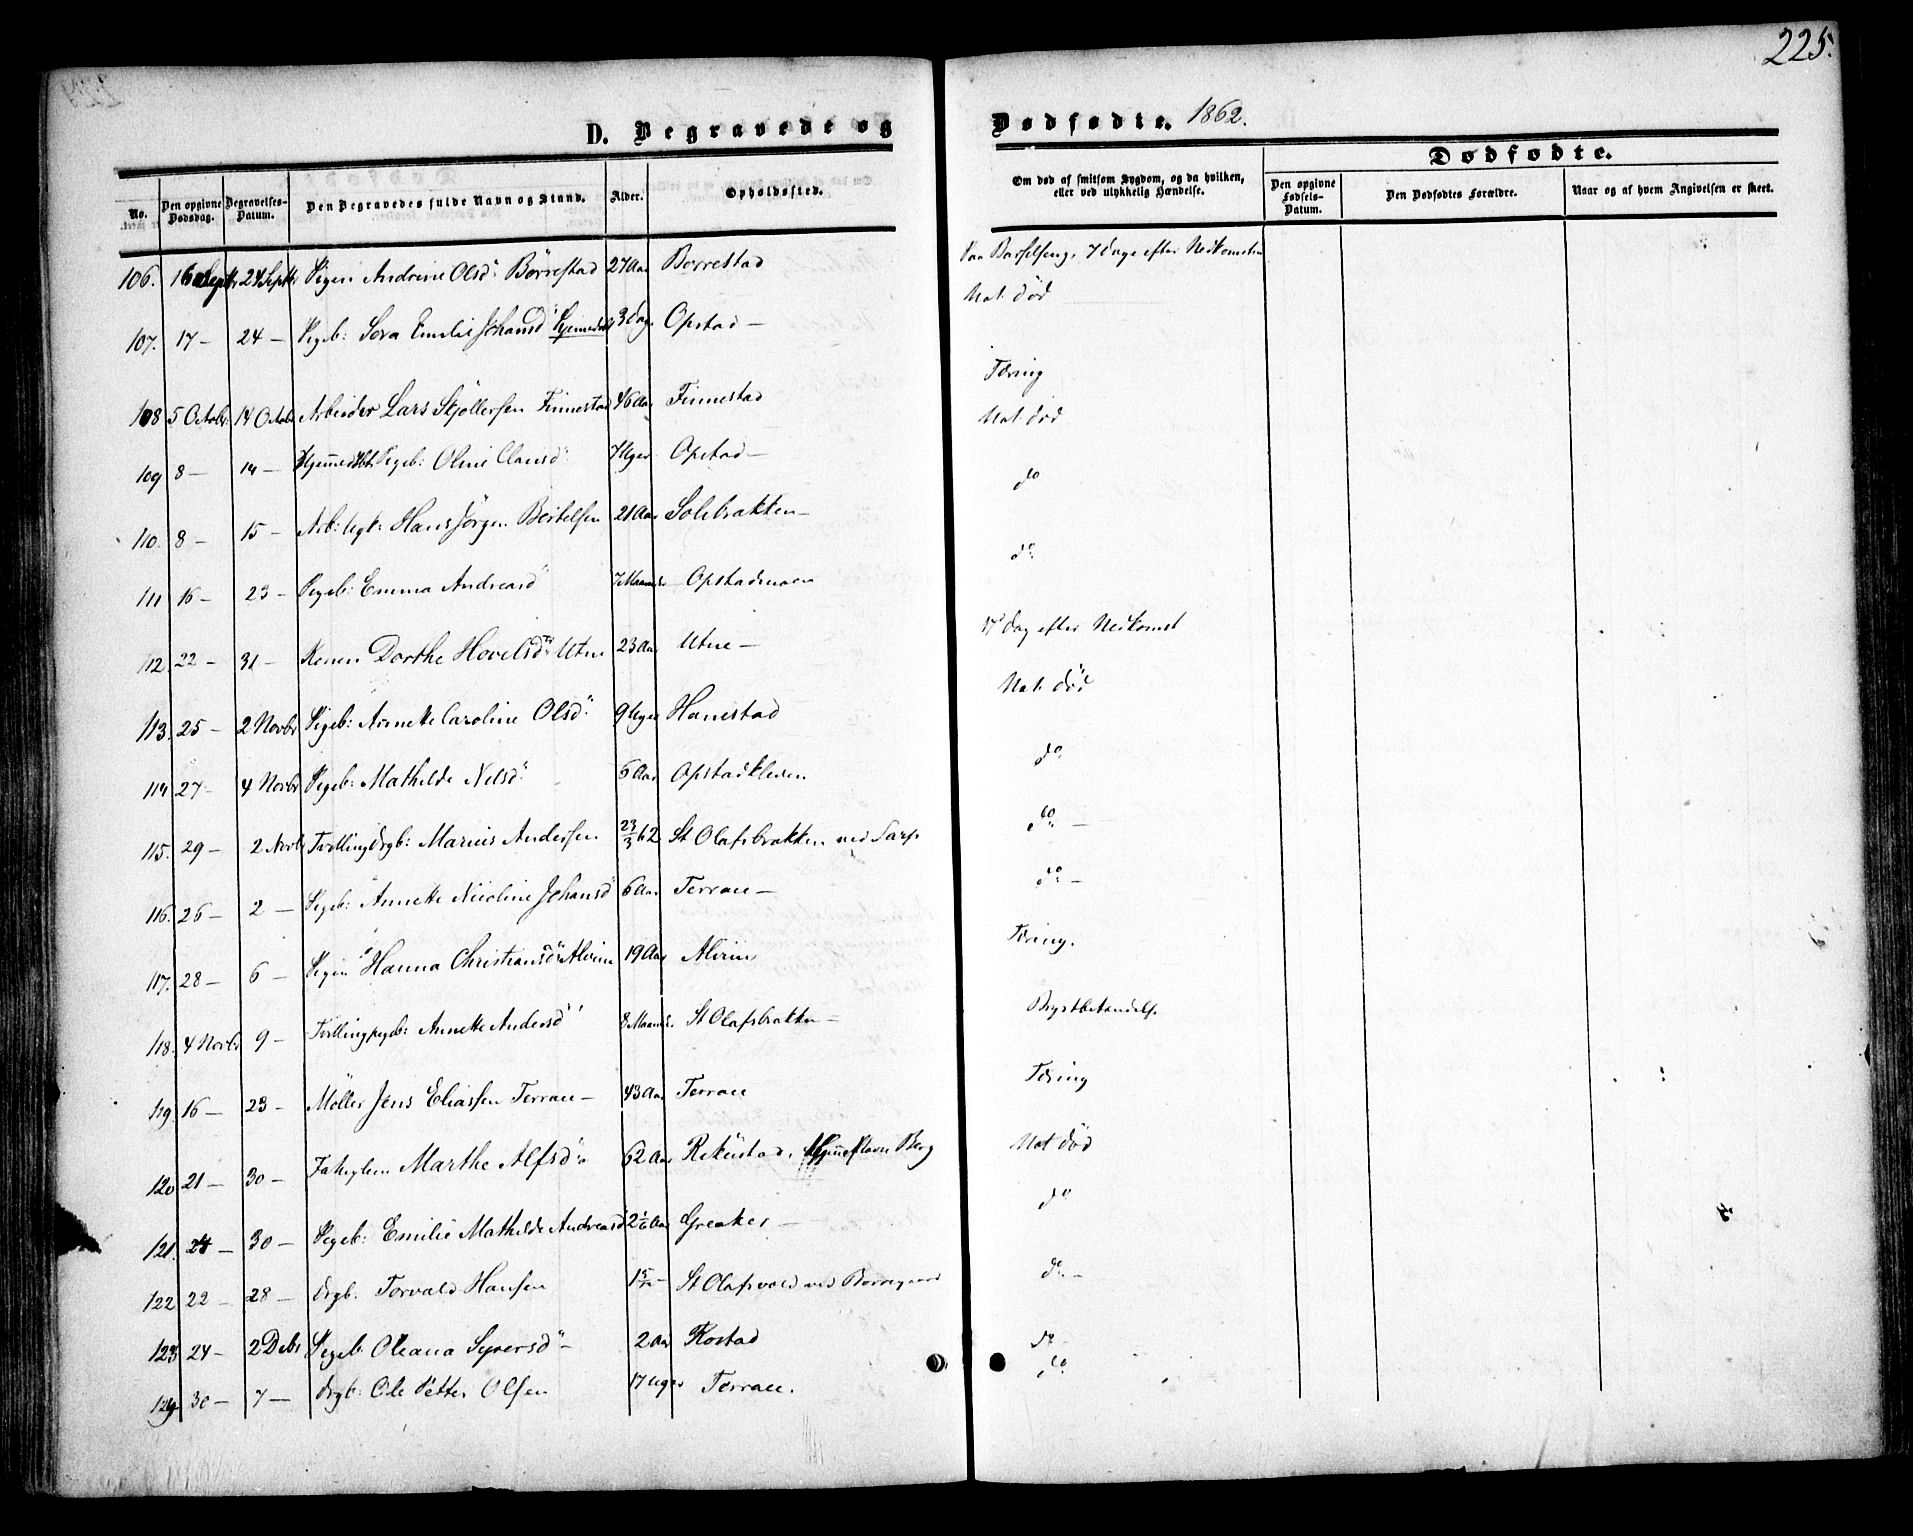 225.
D. Begravede og Dødfødte. 1862.
Dødfødte.
No. Den opgivne Dødsdag. Begravelses-Datum. Den Begravedes fulde Navn og Stand. Alder. Opholdssted. Om død af smitsom Sygdom, og da hvilken, eller ved ulykkelig Hændelse. Den opgivne Fødsels-Datum. Den Dødfødtes Forældre. Naar og af hvem Angivelsen er skeet.
106. 16 Septr 24 Septr Pigen Andrine Olsd: Börrestad 27 Aar Borrestad Paa Barselseng, 7 Dage efter Nedkomsten
107. 17 – 24 – Pigeb: Emilie Johansd Hjemmedøbt 3 Dage Opstad – Nat. død
108 5 Octobr 14 Octobr Arbeider Lars Skjöllersen Finnestad 46 Aar Finnestad Tæring
109 8 – 14 – Hjemmedøbt Pigeb: Oline Clausd: 7 Uger Opstad – Nat. død
110. 8 – 15 – Arb: Hans Jörgen Bertelsen 21 Aar Solebrakken – do
111 16 – 23 – Pigeb: Emma Andreasd 7 Maaneder Opstadmoen do
112 22 – 31 – Konen Dorthe Hovelsd: Utne 23 Aar Utne – Dag efter Nedkomst
113. 25 – 2 Novbr Pigeb: Annette Caroline Olsd: 9 Uger Hanestad Nat. død
114 27 – 4 Novbr Pigeb: Mathilde Nelsd: 6 Aar Opstadkleven do
115. 29 – 2 Novbr Tvilling drgb: Marius Andersen 23/3 62 St Olafsbrakken ved Sarp do –
116. 26 – 2 – Pigeb: Annette Nicoline Johansd 6 Aar Terrace – do –
117. 28 – 6 – Pigen Hanna Christiansd: Alvim 19 Aar Alvim Tæring.
118. 4 Novbr 9 – Tvillingpigeb: Annette Andersd 8 Maaneder St Olafsbrakken – Brystbetændelse
119. 16 – 23 – Möller Jens Eliassen Terrace – 43 Aar Terrace Tæring
120 21 – 30 – Marthe Alfsd: 62 Aar Rekustad, Berg Nat død
121. 24 – 30 – Pigeb: Emilie Mathilde Andreasd 2 1/6 Aar Greaker – do
122 22 – 28 – drgb: Torvald Hansen 1 St Olafsvold ved Borregaard do –
123 24 – 2 Debr Pigeb Oleana Syversd – 2 Aar Rostad do –
124. 30 – 7 – drgb: Ole Petter Olsen 17 Uger Terrace. do